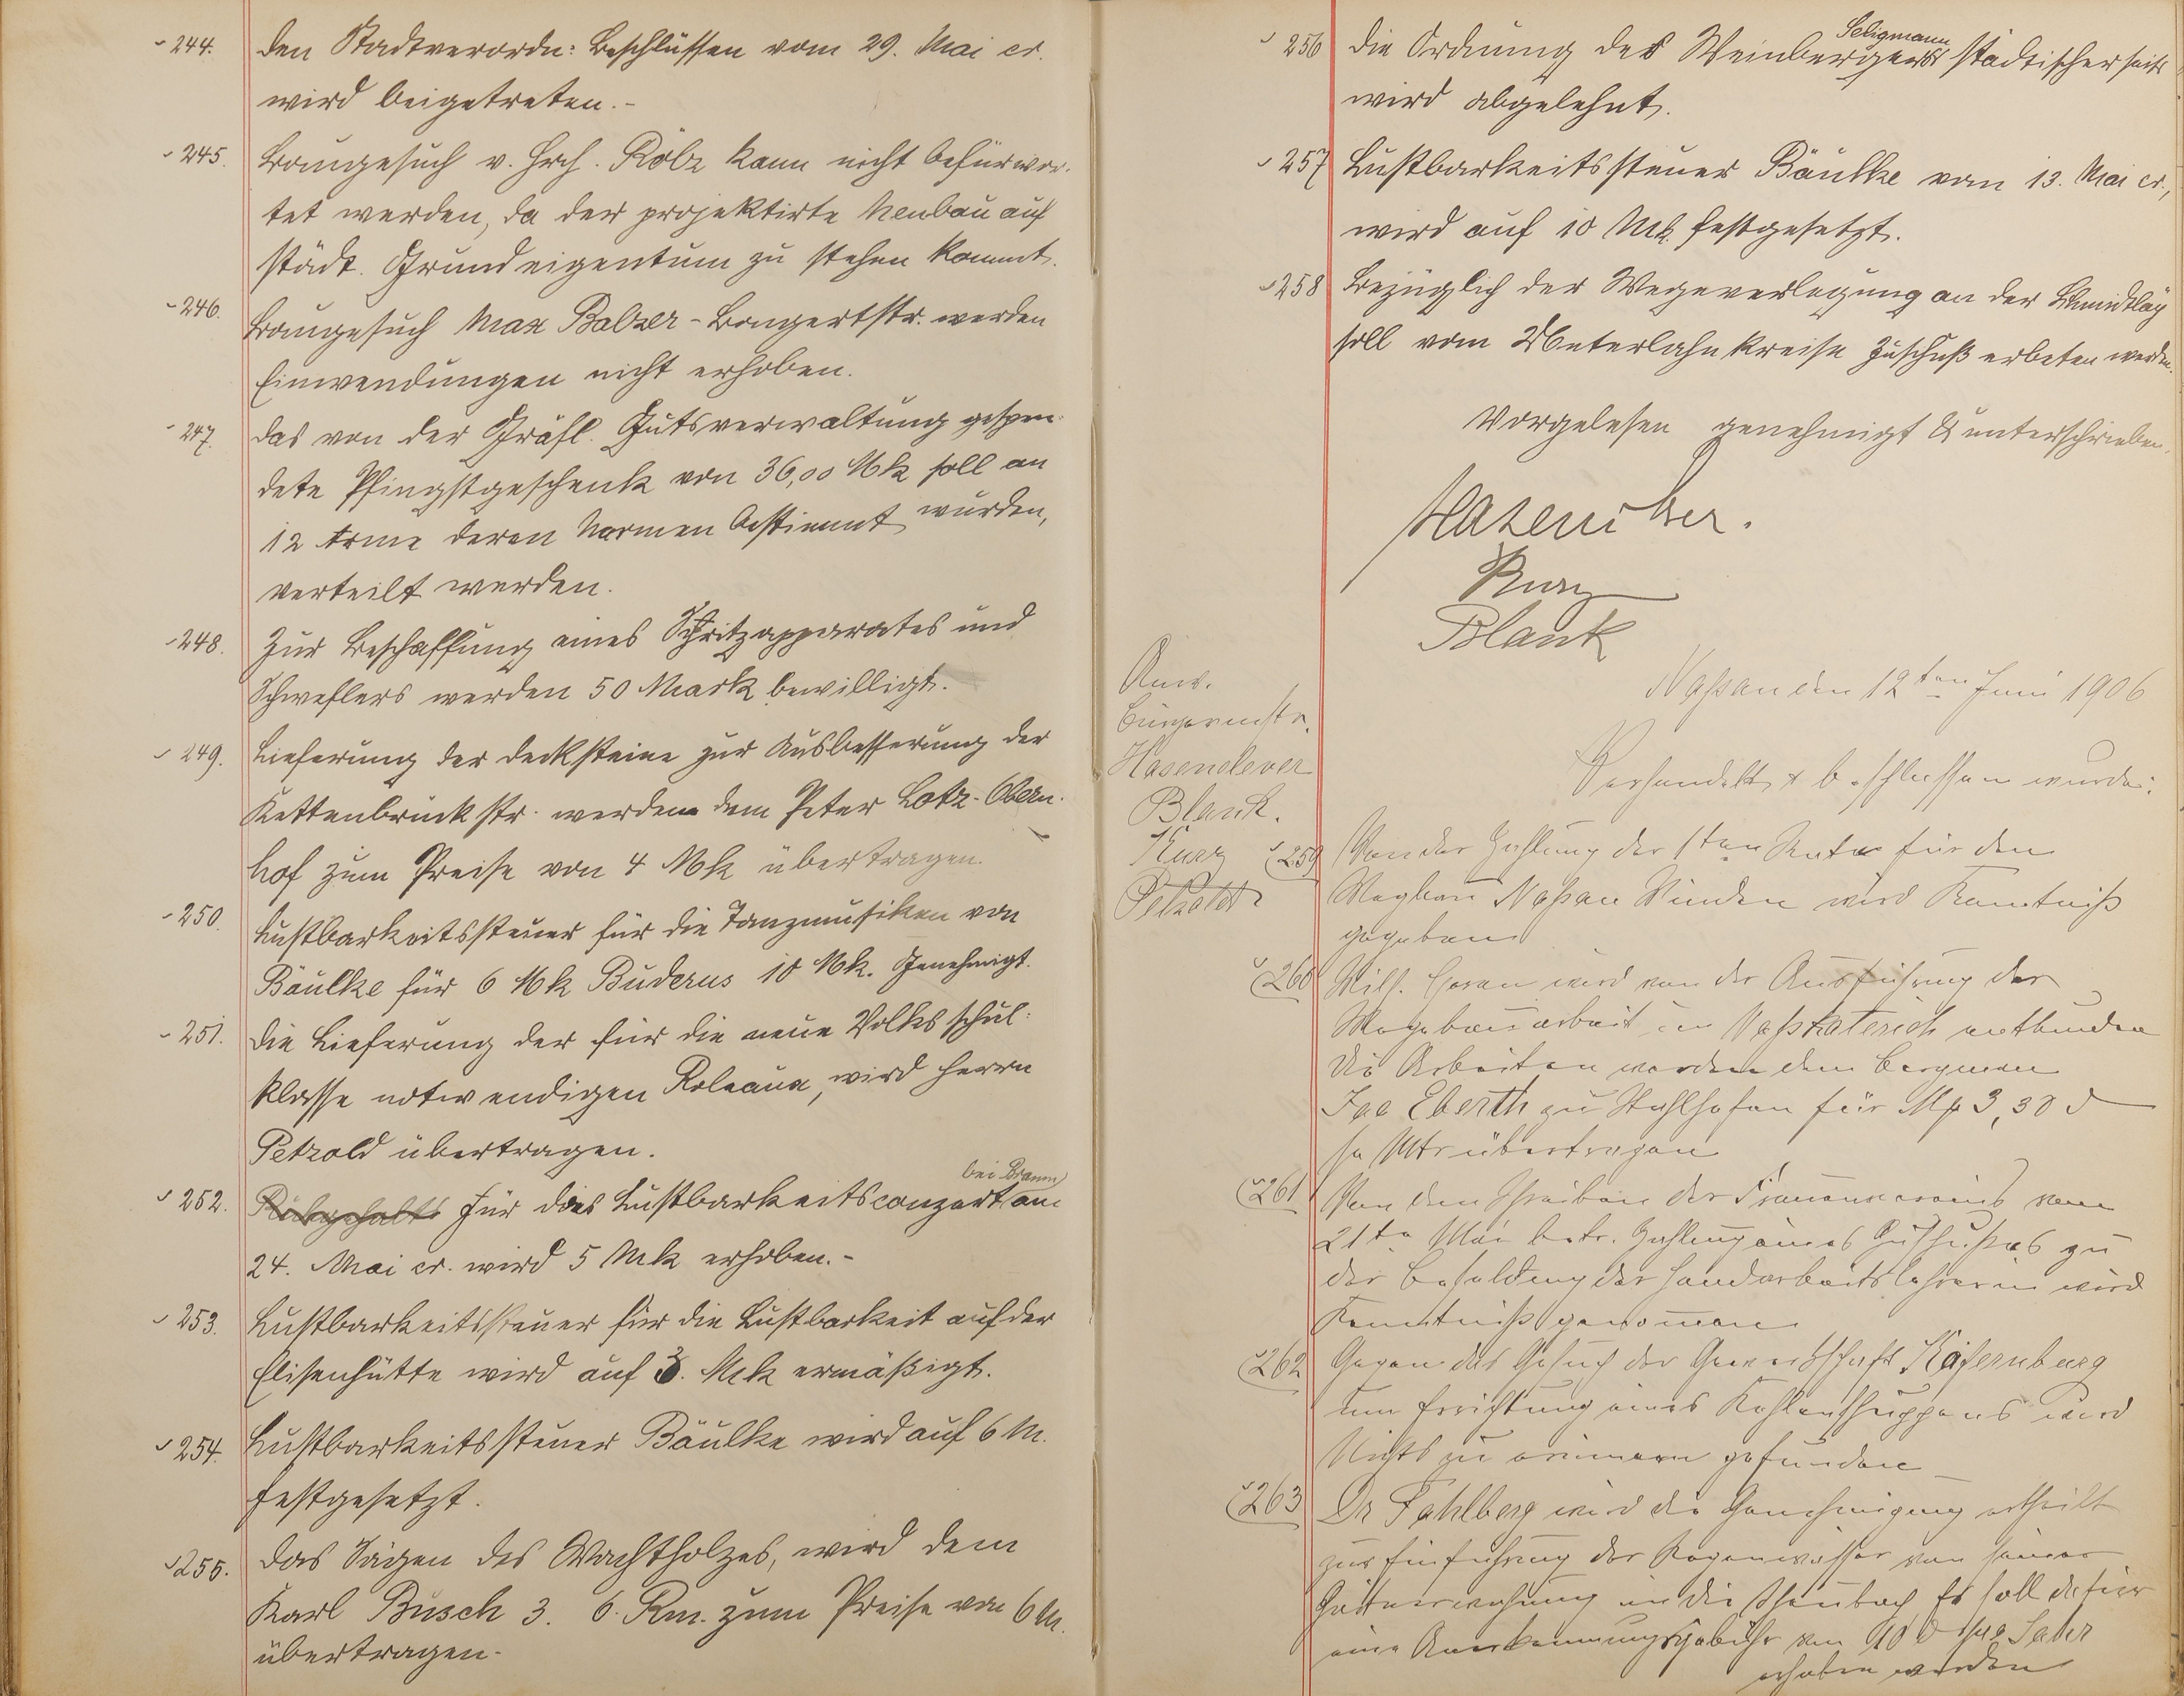 244. Den Stadtverordn: Beschlüssen vom 29. Mai cr.
wird beigetreten.-
245. Baugesuch v. Hrch. Rölz kann nicht befürwor-
tet werden, da der projektirte Neubau auf
städt. Grundeigentum zu stehen kommt.
246. Baugesuch Max Balzer-Bongertstr. werden
Einwendungen nicht erhoben.
247. Das von der Gräfl. Gutsverwaltung gespen-
dete Pfingstgeschenk von 36,00 Mk soll an
12 Arme deren Namen bestimmt wurden,
verteilt werden.
248. Zur Beschaffung eines Spritzapparates und
Schweflers werden 50 Mark bewilligt.
249. Lieferung der Decksteine zur Ausbesserung der
Kettenbrückstr. werden dem Peter Lotz-Obern-
hof zum Preise von 4 Mk übertragen.
250. Lustbarkeitssteuer für die Tanzmusiken von
Bäulke für 6 Mk Buderus 10 Mk. Genehmigt.
251. Die Lieferung der für die neue Volksschul-
klasse notwendigen Roleaux, wird Herrn
Petzold übertragen.
bei Braun
252. für das Lustbarkeitsconzert am
24. Mai cr. wird 5 Mk erhoben.-
253. Lustbarkeitssteuer für die Lustbarkeit auf der
Elisenhütte wird auf 3. Mk ermäßigt.
254. Lustbarkeitssteuer Bäulke wird auf 6 M.
festgesetzt.
255. Das Sägen des Wachtholzes, wird dem
Karl Busch 3. 6. Rm. zum Preise von 6 M.
übertragen.-
Seligmann
256 Die Ordnung des Weinberges städtischerseits
wird abgelehnt.
257 Lustbarkeitssteuer Bäulke vom 13. Mai cr.,
wird auf 10 Mk. festgesetzt.
258 Bezüglich der Wegeverlegung an der
soll vom Unterlahnkreise Zuschuß erbeten werden.
Vorgelesen genehmigt & unterschrieben.
Hasenclever.
Kurz
Blank
Naßau den 12ten Juni 1906
Anw.
Bürgermstr.
Hasenclever
Blank.
Kurz
Petzold
Verhandelt & beschlossen wurde:
259 Von der Zahlung der 1ten Rate für den
Wegbau Naßau Winden wird Kenntniß
gegeben
260 Wilh. wird von der Ausführung der
Wegebauarbeit im entbunden
Die Arbeiten werden dem Bergmann
Jac Eberth zu Stahlhofen für Mk 3,30
pr Mtr übertragen
261 Von dem Schreiben des Frauenvereins vom
21te Mai betr. Zahlung eines Zuschußes zu
der Besoldung der Handarbeitslehrerin wird
Kenntniß genommen
262 Gegen das Gesuch der Gewerkschaft Käfernburg
um Errichtung eines Kohlenschuppens wird
Nichts zu erinnern gefunden
263 Dr Fahlberg wird die Genehmigung ertheilt
zur Einführung der Regenwasser von seiner
in die Es soll dafür
eine Anerkennungsgebühr von pro Jahr
erhoben werden